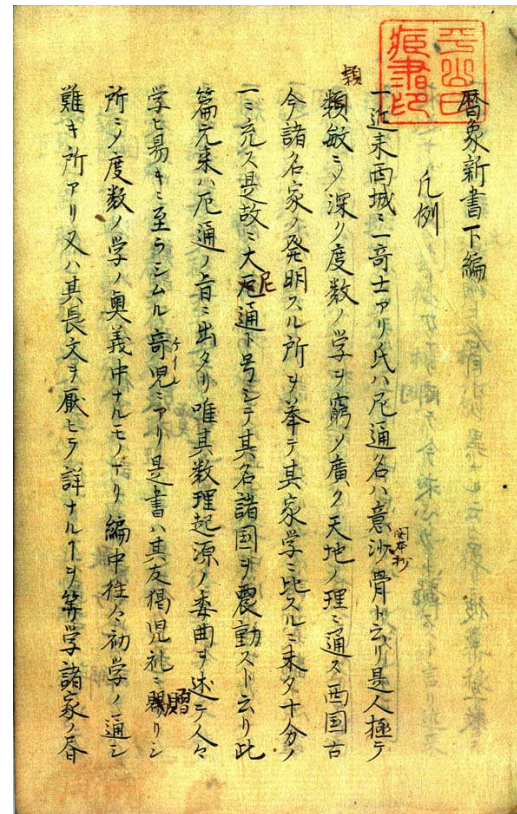 暦象新書下編
凡例
一近来西域ニ一奇士アリ氏ハ尼通名ハ意沙骨ト云リ是人極テ
頴
類敏ニノ深ク度数ノ学ヲ窮ノ廣ク天地ノ理ニ通ス西国古
今諸名家ノ発明スル所ヲ挙テ其家学ニ比スルニ未タ十分ノ
一ニ充ス是故ニ大尼通ト号シテ其名諸国ヲ震動スト云リ此
尼
篇元来ハ尼通ノ旨ニ出タリ唯其数理起源ノ委曲ヲ述テ人々
学ヒ易キニ至ラシムル奇児ニアリ是書ハ其友
ケイル
所ニノ度数ノ学ノ奥義中ナルモノナリ編中往々初学ノ通シ
難キ所アリ又ハ其長文ヲ厭ヒテ詳ナルヿヲ算学諸家ノ